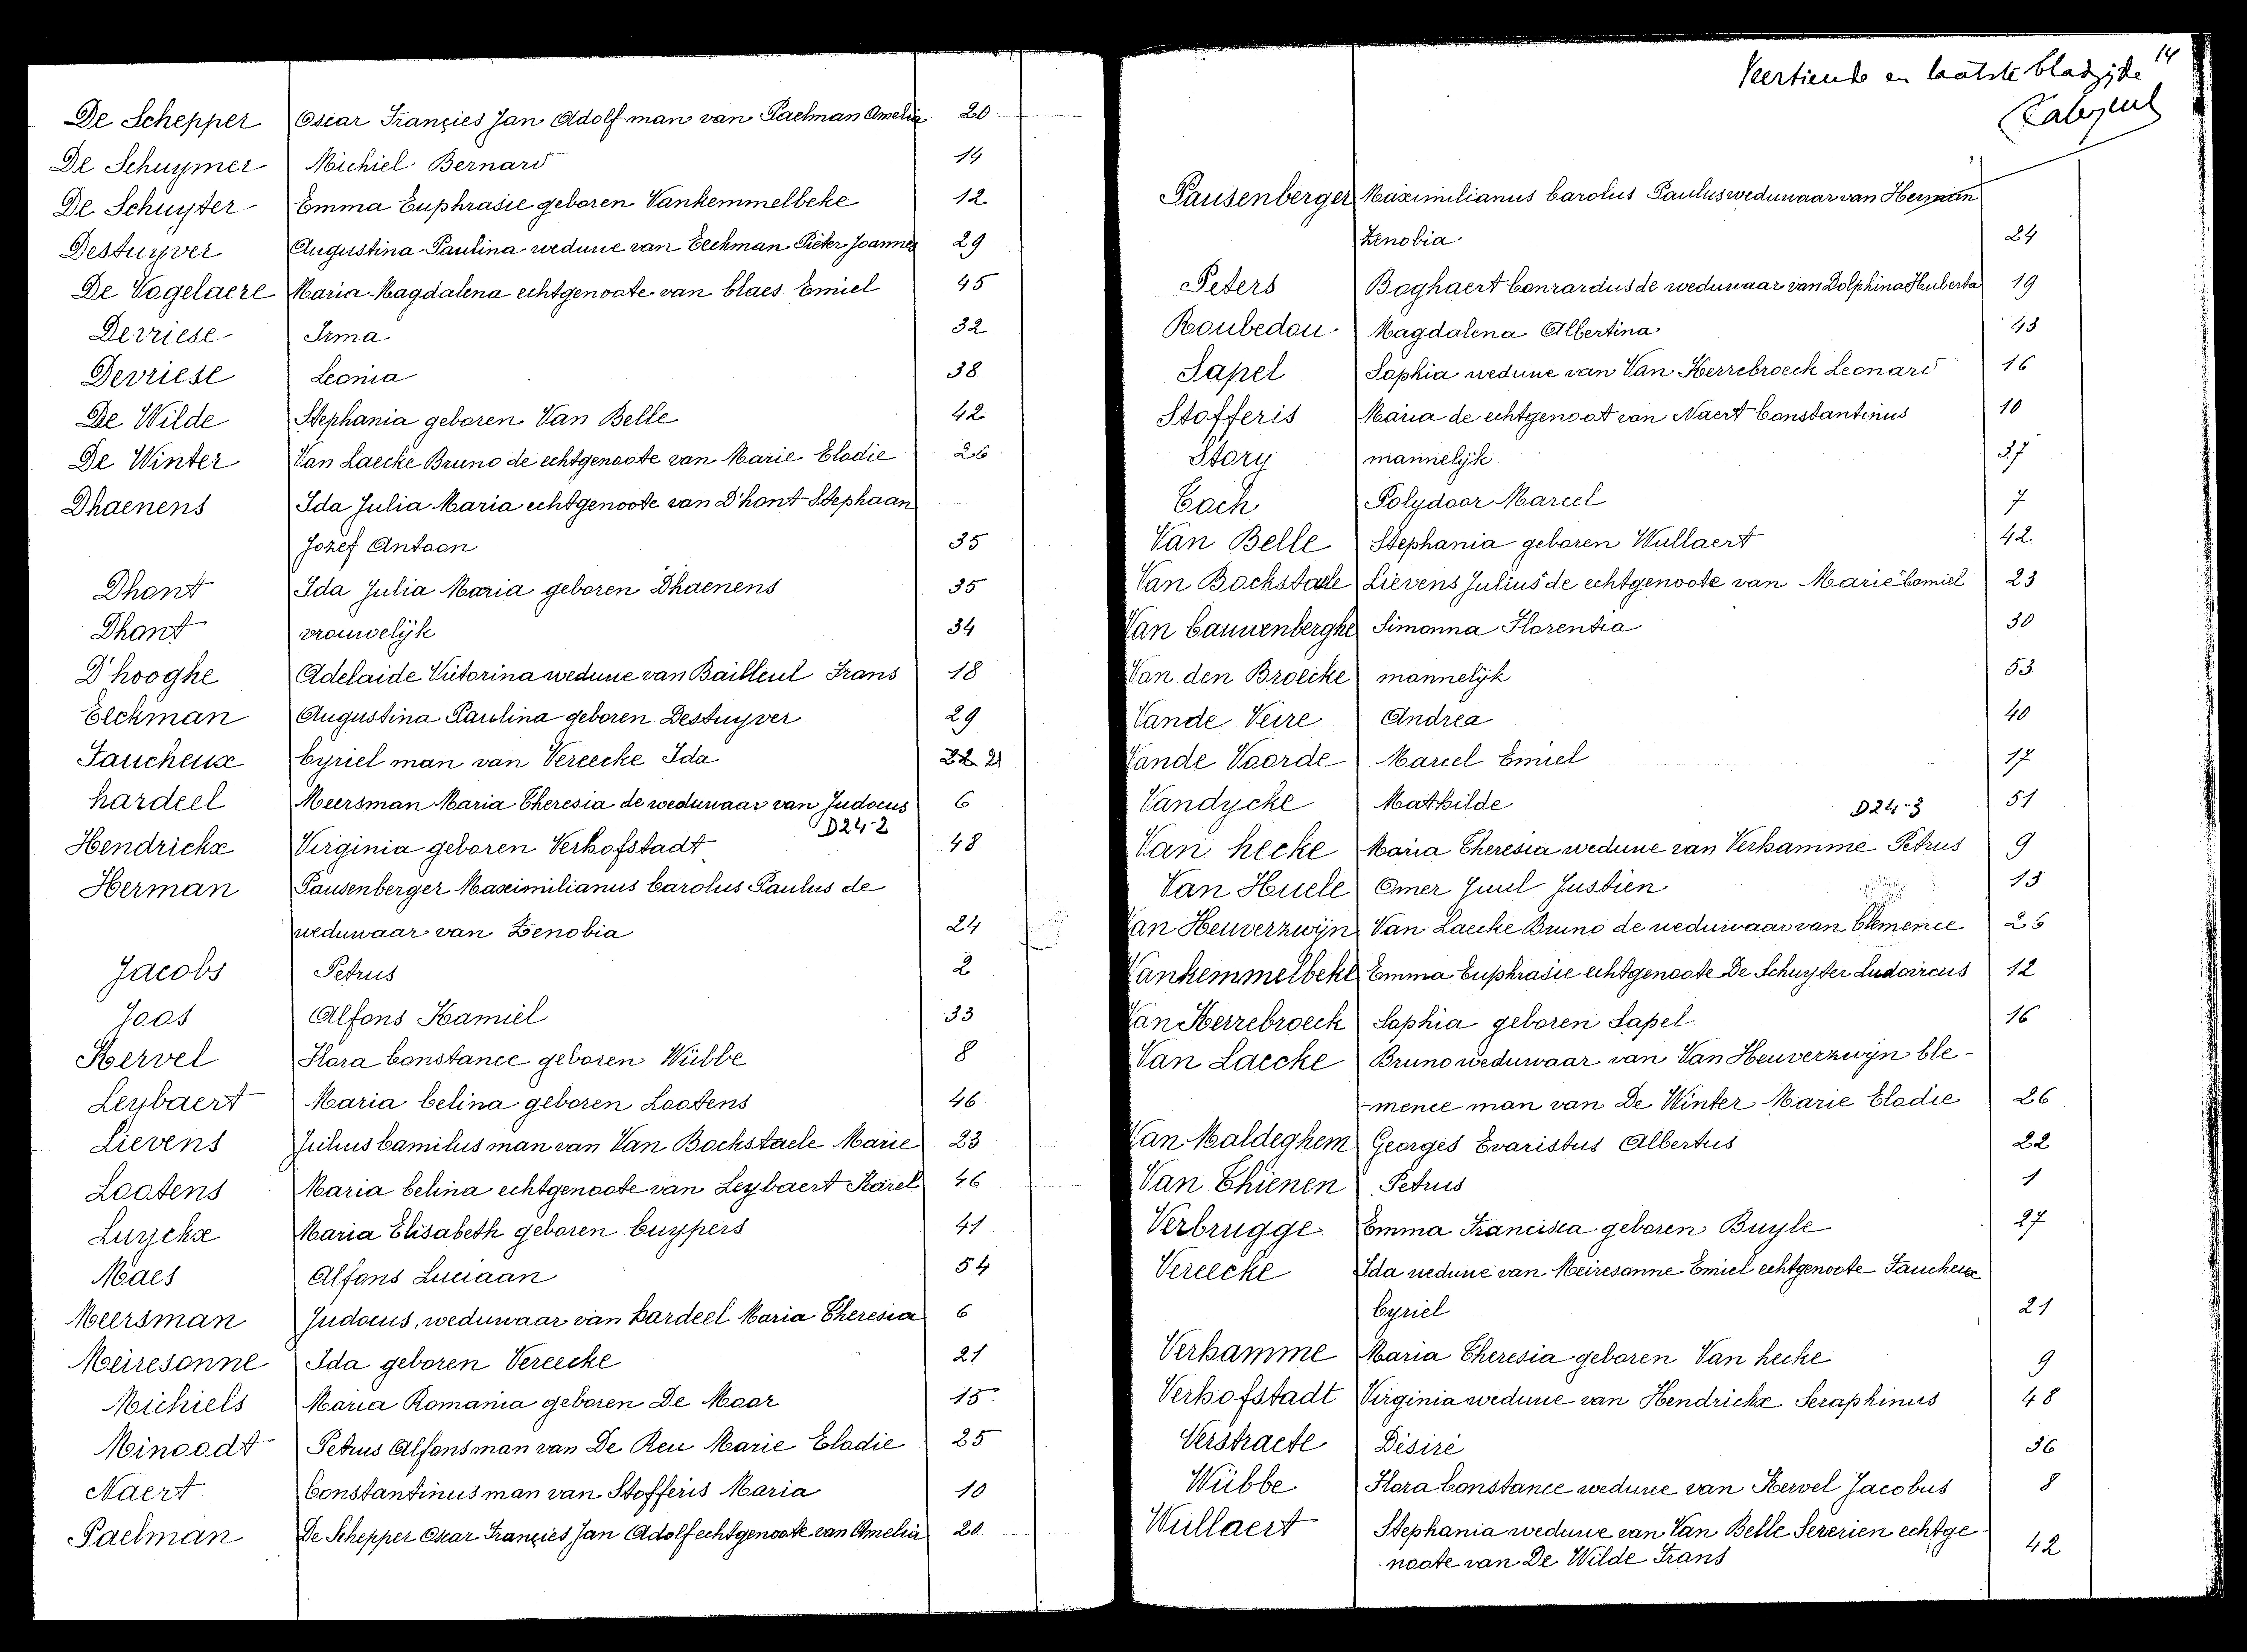 De Schepper Oscar Françies Jan Adolf man van Paelman Amelia 20
De Schuymer Michiel Bernard 14
De Schuyter Emma Euphrasie geboren Vankemmelbeke 12
Destuyver Augustina Paulina weduwe van Eeckman Pieter Joannes 29
De Vogelaere Maria Magdalena echtgenoote van Claes Emiel 45
Devriese Irma 32
Devriese Leonia 38
De Wilde Stephania geboren Van Belle 42
De Winter Van Laecke Bruno de echtgenoote van Marie Elodie 26
Dhaenens Ida Julia Maria echtgenoote van D'hont Stephaan
Jozef Antoon 35
Dhont Ida Julia Maria geboren Dhaenens 35
Dhont vrouwelijk 34
D'hooghe Adelaide Victorina weduwe van Bailleul Frans 18
Eeckman Augustina Paulina geboren Destuyver 29
Faucheux Cyriel man van Vereecke Ida 21
hardeel Meersman Maria Theresia de weduwaar van Judocus 6
D24-2
Hendrickx Virginia geboren Verhofstadt 48
Herman Pausenberger Maximilianus Carolus Paulus de
weduwaar van Zenobia 24
Jacobs Petrus 2
Joos Alfons Kamiel 33
Kervel Flora Constance geboren Wübbe 8
Leybaert Maria Celina geboren Lootens 46
Lievens Julius Camilus man van Van Bockstaele Marie 23
Lootens Maria Celina echtgenoote van Leybaert Karel 46
Luyckx Maria Elisabeth geboren Cuypers 41
Maes Alfons Luciaan 54
Meersman Judocus, weduwaar van hardeel Maria Theresia 6
Meiresonne Ida geboren Vereecke 21
Michiels Maria Romania geboren De Moor 15
Minoodt Petrus Alfons man van De Reu Marie Elodie 25
Naert Constantinus man van Stofferis Maria 10
Paelman De Schepper Oscar Françies Jan Adolf echtgenoote van Amelia 20
14
Veertiende en laatste bladzijde
Pausenberger Maximilianus Carolus Paulus weduwaar van Herman
Zenobia 24
Peters Boghaert Conrardus de weduwaar van Dolphina Huberta 19
Roubedou Magdalena Albertina 43
Sapel Sophia weduwe van Van Herrebroeck Leonard 16
Stofferis Maria de echtgenoot van Naert Constantinus 10
Story mannelijk 37
Toch Polydoor Marcel 7
Van Belle Stephania geboren Wullaert 42
Van Bockstaele Lievens Julius de echtgenoote van Marie Camiel 23
Van Cauwenberghe Simonna Florentia 30
Van den Broecke mannelijk 53
Vande Veire Andrea 40
Vande Voorde Marcel Emiel 17
Vandycke Mathilde 51
D24-3
Van hecke Maria Theresia weduwe van Verhamme Petrus 9
Van Huele Omer Juul Justien 13
Van Heuverzwijn Van Laecke Bruno de weduwaar van Clemence 26
Vankemmelbeke Emma Euphrasie echtgenoote De Schuyter Ludovicus 12
Van Herrebroeck Sophia geboren Sapel 16
Van Laecke Bruno weduwaar van Van Heuverzwijn Cle-
-mence man van De Winter Marie Elodie 26
Van Maldeghem Georges Evaristus Albertus 22
Van Thienen Petrus 1
Verbrugge Emma Francisca geboren Buyle 27
Vereecke Ida weduwe van Meiresonne Emiel echtgenoote Faucheux
Cyriel 21
Verhamme Maria Theresia geboren Van hecke 9
Verhofstadt Virginia weduwe van Hendrickx Seraphinus 48
Verstraete Désiré 36
Wübbe Flora Constance weduwe van Kervel Jacobus 8
Wullaert Stephania weduwe van Van Belle Severien echtge-
noote van De Wilde Frans 42